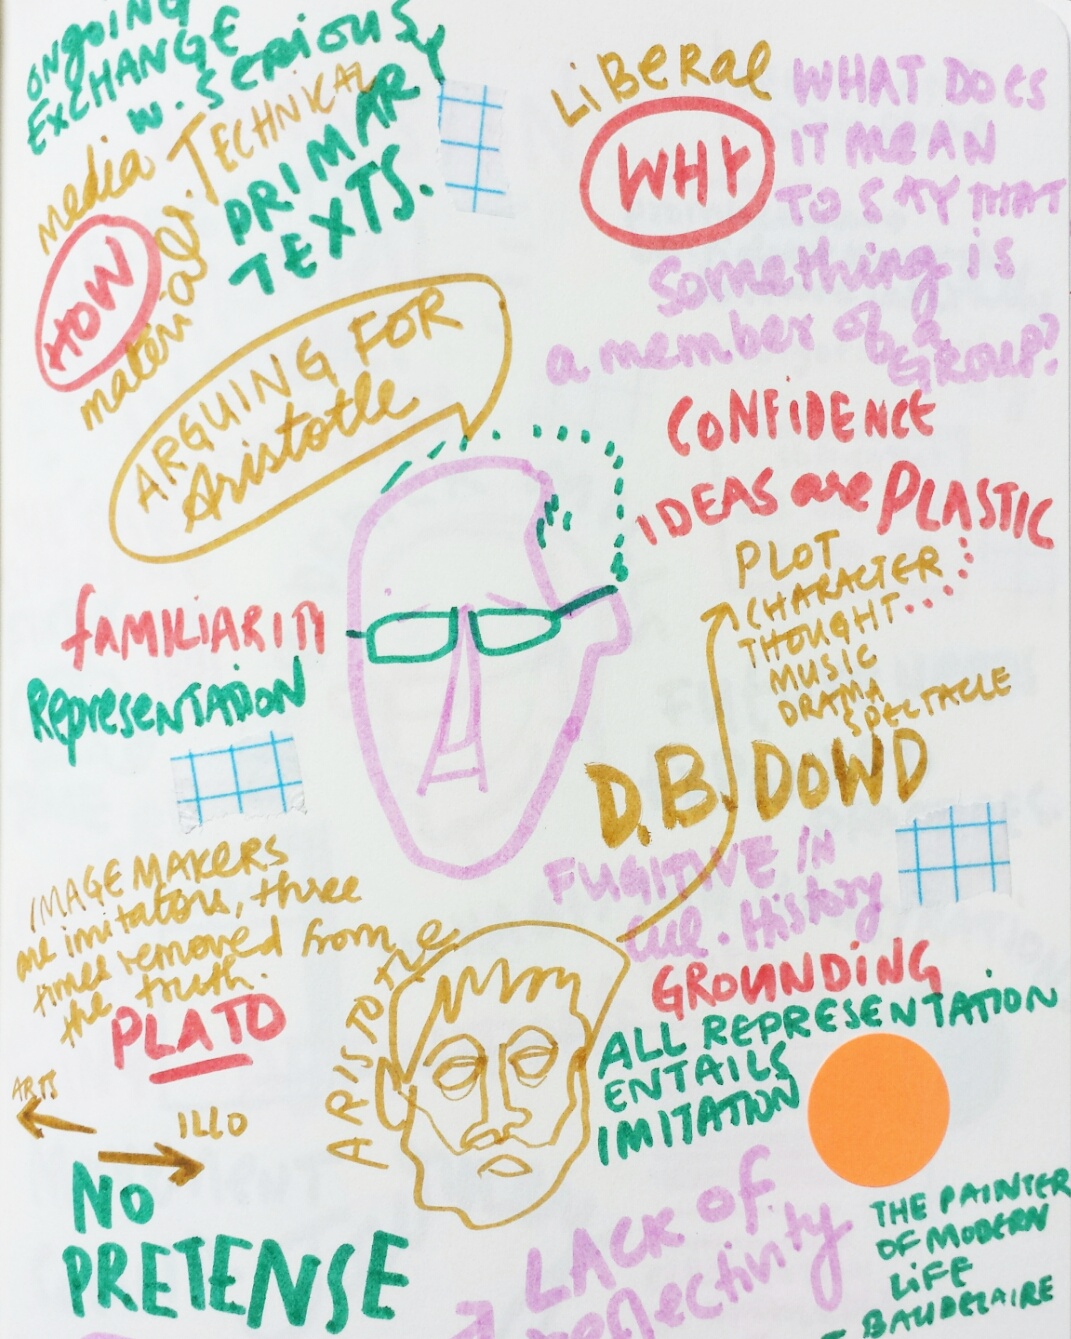 ONGOING
EXCHANGE
W. SERIOUS
PRIMARY
TEXTS.
media
TECHNICAL
HOW
materials.
LiBeRal
WHY
WHAT DOES
IT MEAN
TO SAY THAT
Something is
a member of a
GROUP?
ARGUING FOR
Aristotle
CONFiDENCE
IDEAS are PLASTIC
PLOT
CHARACTER
THOUGHT
MUSIC
DRAMA
SPECTACLE
fAMILIARITY
RepresenTATiON
D.B. DOWD
FUGITIVE IN
Cul. History
IMAGE MAKERS
are imitators, three
times removed from
the truth.
PLATO
ARISTOTLE
GROUNDiNG
ALL REPRESENTATION
ENTAILS
IMITATION
ARTS
ILLO
NO
PRETENSE
LACK of
reflectivity
THE PAINTER
OF MODERN
LiFE
- BAUDELAIRE